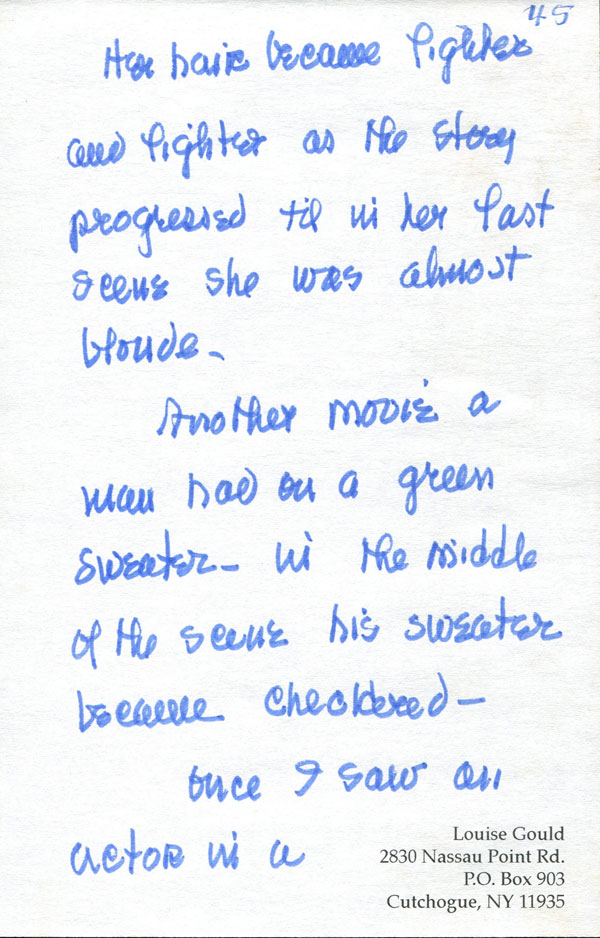 45
Her hair became lighter
and lighter as the story
progressed til in her last
scene she was almost
blonde-
Another movie a
man had on a green
sweater- in the middle
of the scene his sweater
became checkered-
once I saw an
actor in a
Louise Gould
2830 Nassau Point Rd.
P.O. Box 903
Cutchogue, NY 11935